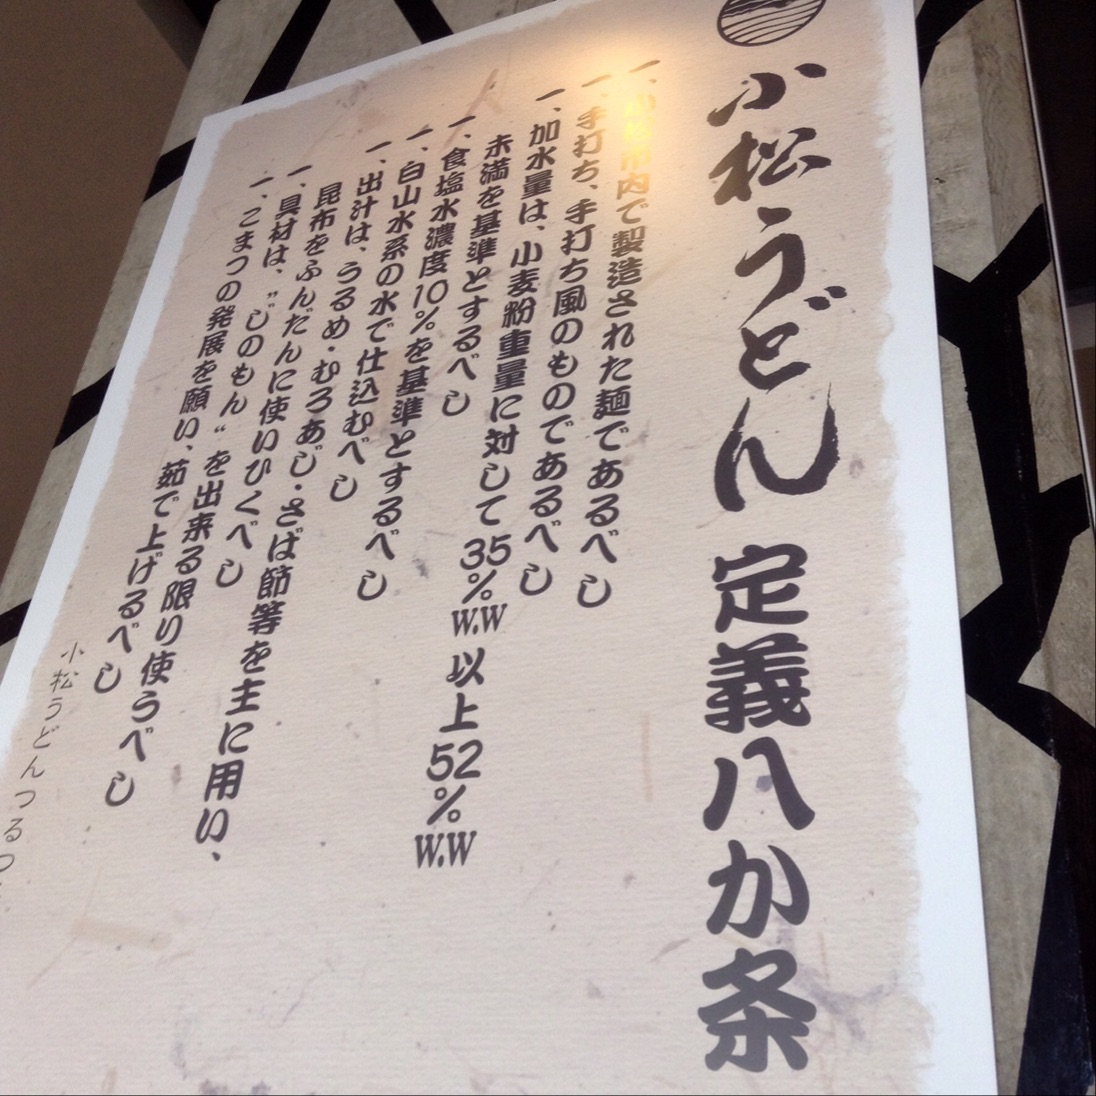 小松うどん 定義八か条
一、小松市内で製造された麺であるべし
一、手打ち、手打ち風のものであるべし
一、加水量は、小麦粉重量に対して35%W.W以上52%W.W
未満を基準とするべし
一、食塩水濃度10%を基準とするべし
一、白山水系の水で仕込むべし
一、出汁は、うるめ・むろあじ・さば節等を主に用い、
昆布をふんだんに使いひくべし
一、具材は、"じのもん"を出来る限り使うべし
一、こまつの発展を願い、茹で上げるべし
小松うどんつるつ